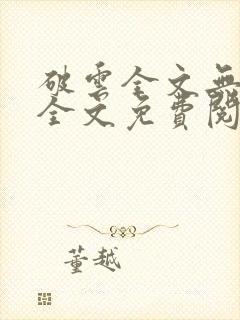 破雲全文無
全文免費閱
董越